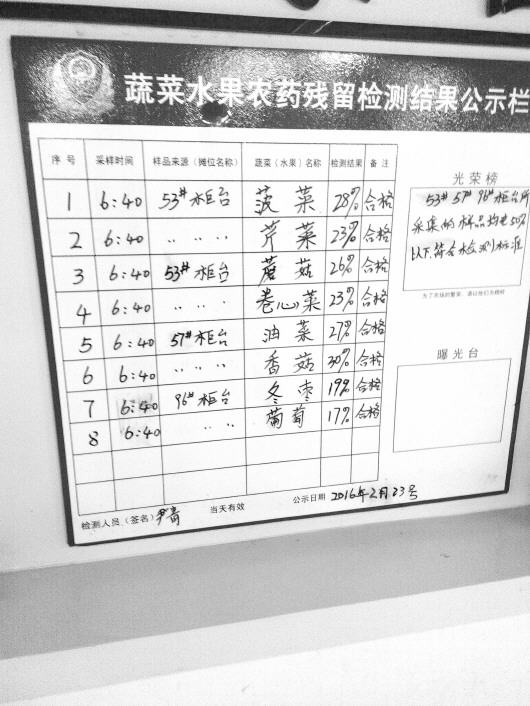 蔬菜水果农药残留检测结果公示栏
序号 采样时间 样品来源（摊位名称） 蔬菜（水果）名称 检测结果 备注
1 6:40 53# 柜台 菠菜 28% 合格
2 6:40 〃 〃 〃 芹菜 23% 合格
3 6:40 53# 柜台 蘑菇 26% 合格
4 6:40 〃 〃 〃 卷心菜 23% 合格
5 6:40 57# 柜台 油菜 27% 合格
6 6:40 〃 〃 〃 香菇 30% 合格
7 6:40 96# 柜台 冬枣 19% 合格
8 6:40 〃 〃 葡萄 17% 合格
检测人员（签名） 当天有效 公示日期 2016年2月23号
光荣榜
53# 57# 96# 柜台所
采集的样品均在50%
以下.符合检测标准
为了市场的繁荣，请以他们为榜样
曝光台